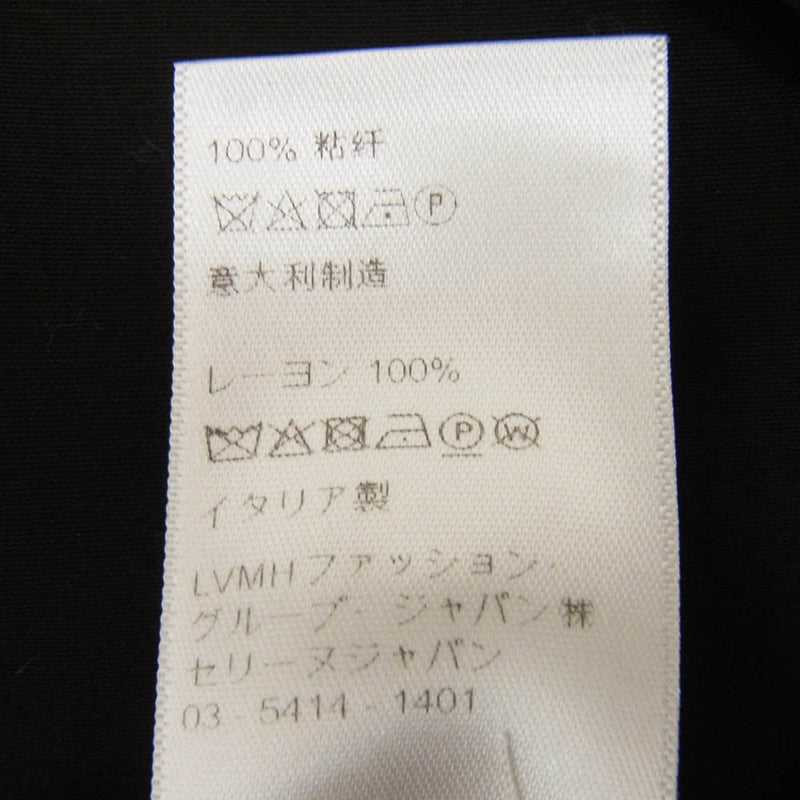 100% 粘纤
P
意大利制造
レーヨン 100%
P W
イタリア製
LVMHファッション·
グループ- ジャパン 株
セリーヌジャパン
03 - 5414 - 1401